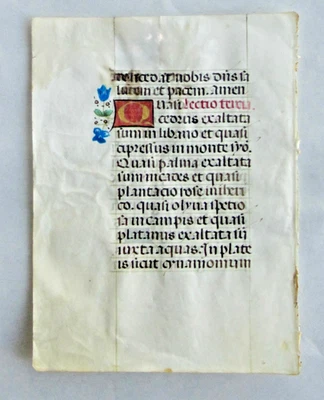 nobis dñs sa
lutem et pacem. Amen
Quasi Lectio tercia
cedrus exaltata
sum in libano et quasi
cipressus in monte syō.
Quasi palma exaltata
sum in cades et quasi
plantacio rose in iheri
co. quasi oliva specio
sa in campis et quasi
platanus exaltata sū
iuxta aquas. In plate
is sicut cynamomum